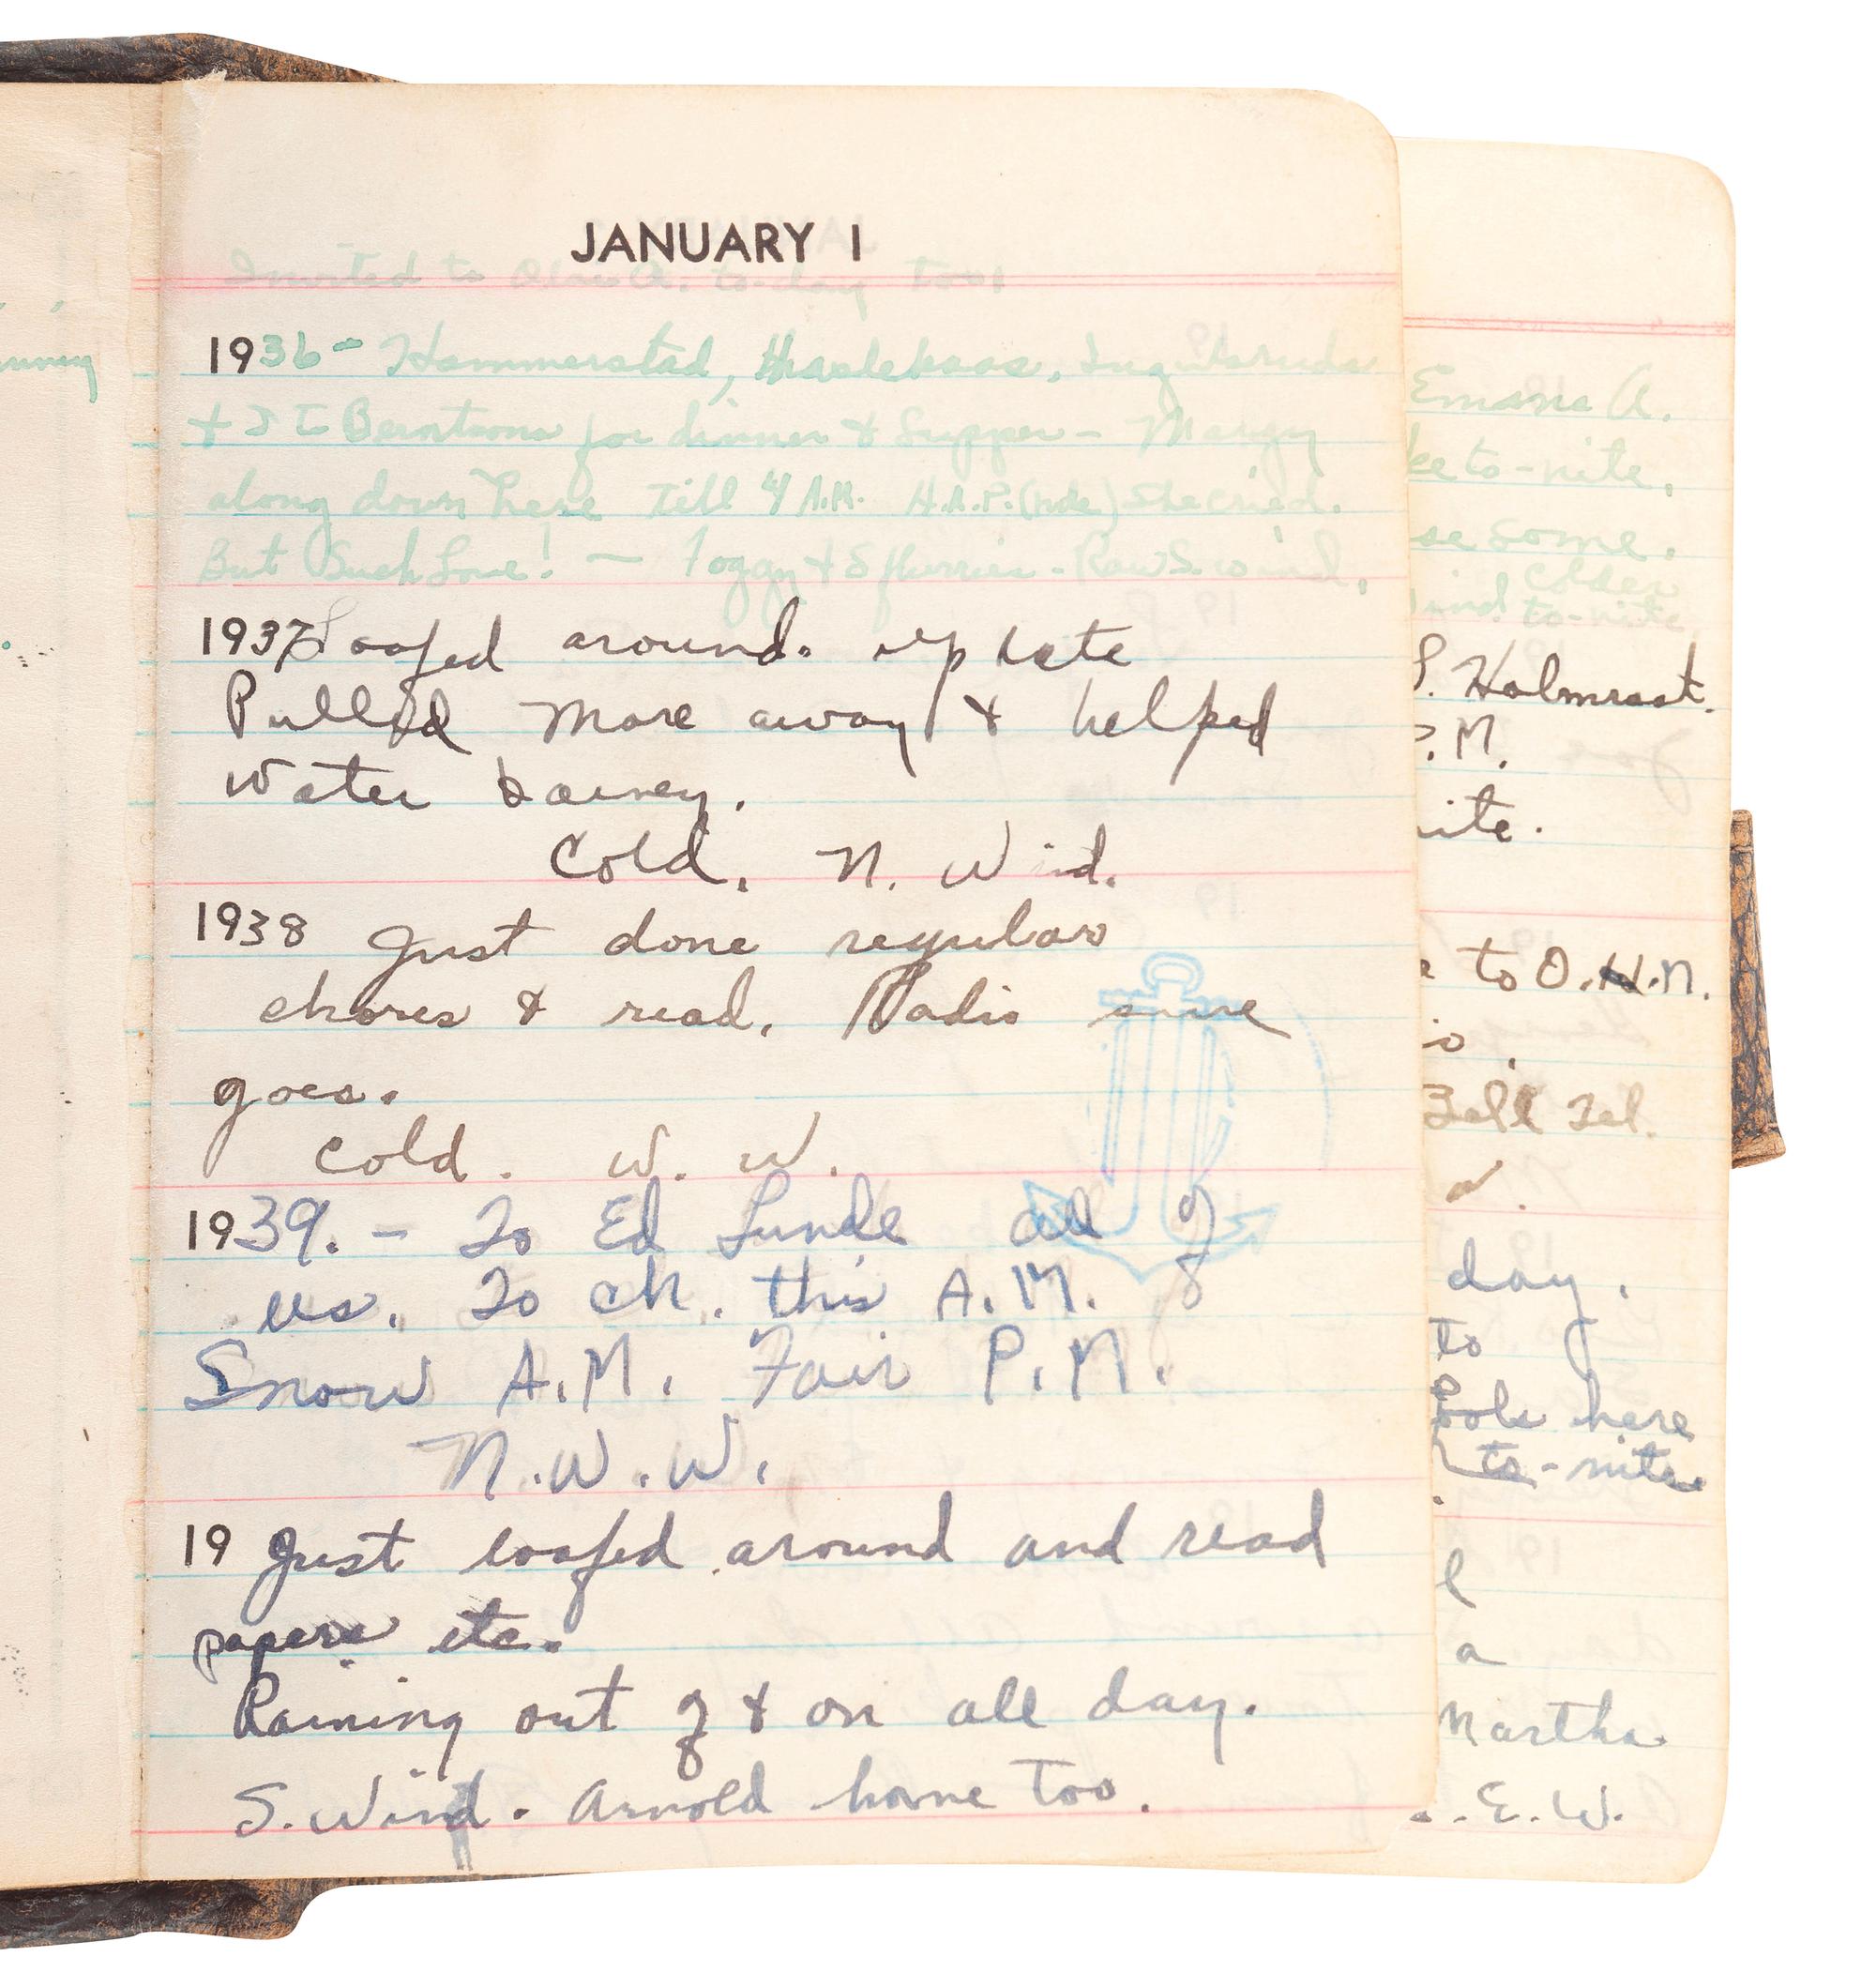 JANUARY 1
Invited to A. to-day too!
1936 - Hammerstad,
+ I to Berntsons for dinner & Supper - Margy
along down here till 4 A.M. H.A.P. She cried.
But Such Love! - Foggy & S flurries - Raw S. wind.
1937 Loafed around. up late
Pulled more away & helped
water Barney.
Cold. N. Wind.
1938 Just done regular
chores & read. Radio sure
goes.
Cold. W. W.
1939. - To Ed Lunde all of
us. To ch. this A.M.
Snow A.M. Fair P.M.
N.W.W.
19 Just loafed around and read
papers etc.
Raining out off & on all day.
S. Wind. Arnold home Too.
A.
to-nite.
some.
colder
to-nite
Holmrast.
.M.
ite.
to O.H.N.
Tel.
day.
to
here
to-nite
l
a
Martha
. E. W.